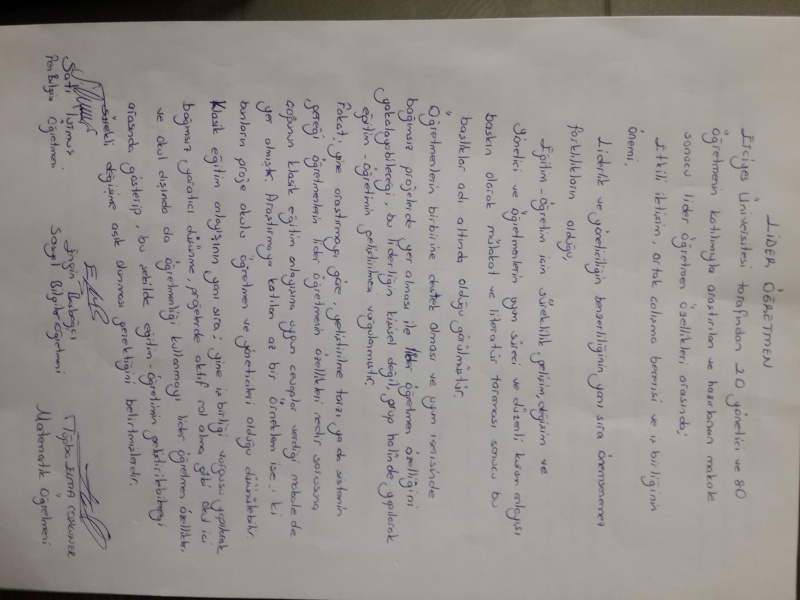 LİDER ÖĞRETMEN
Erciyes Üniversitesi tarafından 20 yönetici ve 80
öğretmenin katılımıyla araştırılan ve hazırlanan makale
sonucu lider öğretmen özellikleri arasında;
Etkili iletişim, ortak çalışma becerisi ve iş birliğinin
önemi.
Liderlik ve yöneticiliğin benzerliğinin yanı sıra önemsenmesi
farklılıkların olduğu,
Eğitim-öğretim için süreklilik, gelişim, değişim ve
yönetici ve öğretmenlerin uyum süreci ve düzenli, kuran anlayışı
baskın olarak mülakat ve literatür taraması sonucu bu
başlıklar adı altında olduğu görülmüştür.
Öğretmenlerin birbirine destek olması ve uyum içerisinde
bağımsız projelerde yer alması ile lider öğretmen özelliğini
yakalayabileceği, bu liderliğin kişisel değil, grup halinde yapılarak
eğitim-öğretimin geliştirilmesi vurgulanmıştır.
Fakat; yine araştırmaya göre, yetiştirilme tarzı ya da sistemin
gereği öğretmenlerin lider öğretmenin özellikleri nedir sorusuna
çoğunun klasik eğitim anlayışına uygun cevaplar verdiği makalede
yer almıştır. Araştırmaya katılan az bir örneklem ise, ki
bunların proje okulu öğretmen ve yöneticileri olduğu düşünülebilir.
Klasik eğitim anlayışının yanı sıra; yine iş birliği vurgusu yapılarak
bağımsız yaratıcı düşünme, projelerde aktif rol alma gibi okul içi
ve okul dışında da öğretmenliği kullanmayı lider öğretmen özellikleri
arasında gösterip, bu şekilde eğitim-öğretimin geliştirilebileceği
sürekli değişime açık olunması gerektiğini belirtmişlerdir.
Satı Tutmuş Engin Tüğba COŞKUNER
Fen Bilgisi Öğretmeni Sosyal Bilgiler Öğretmeni Matematik Öğretmeni